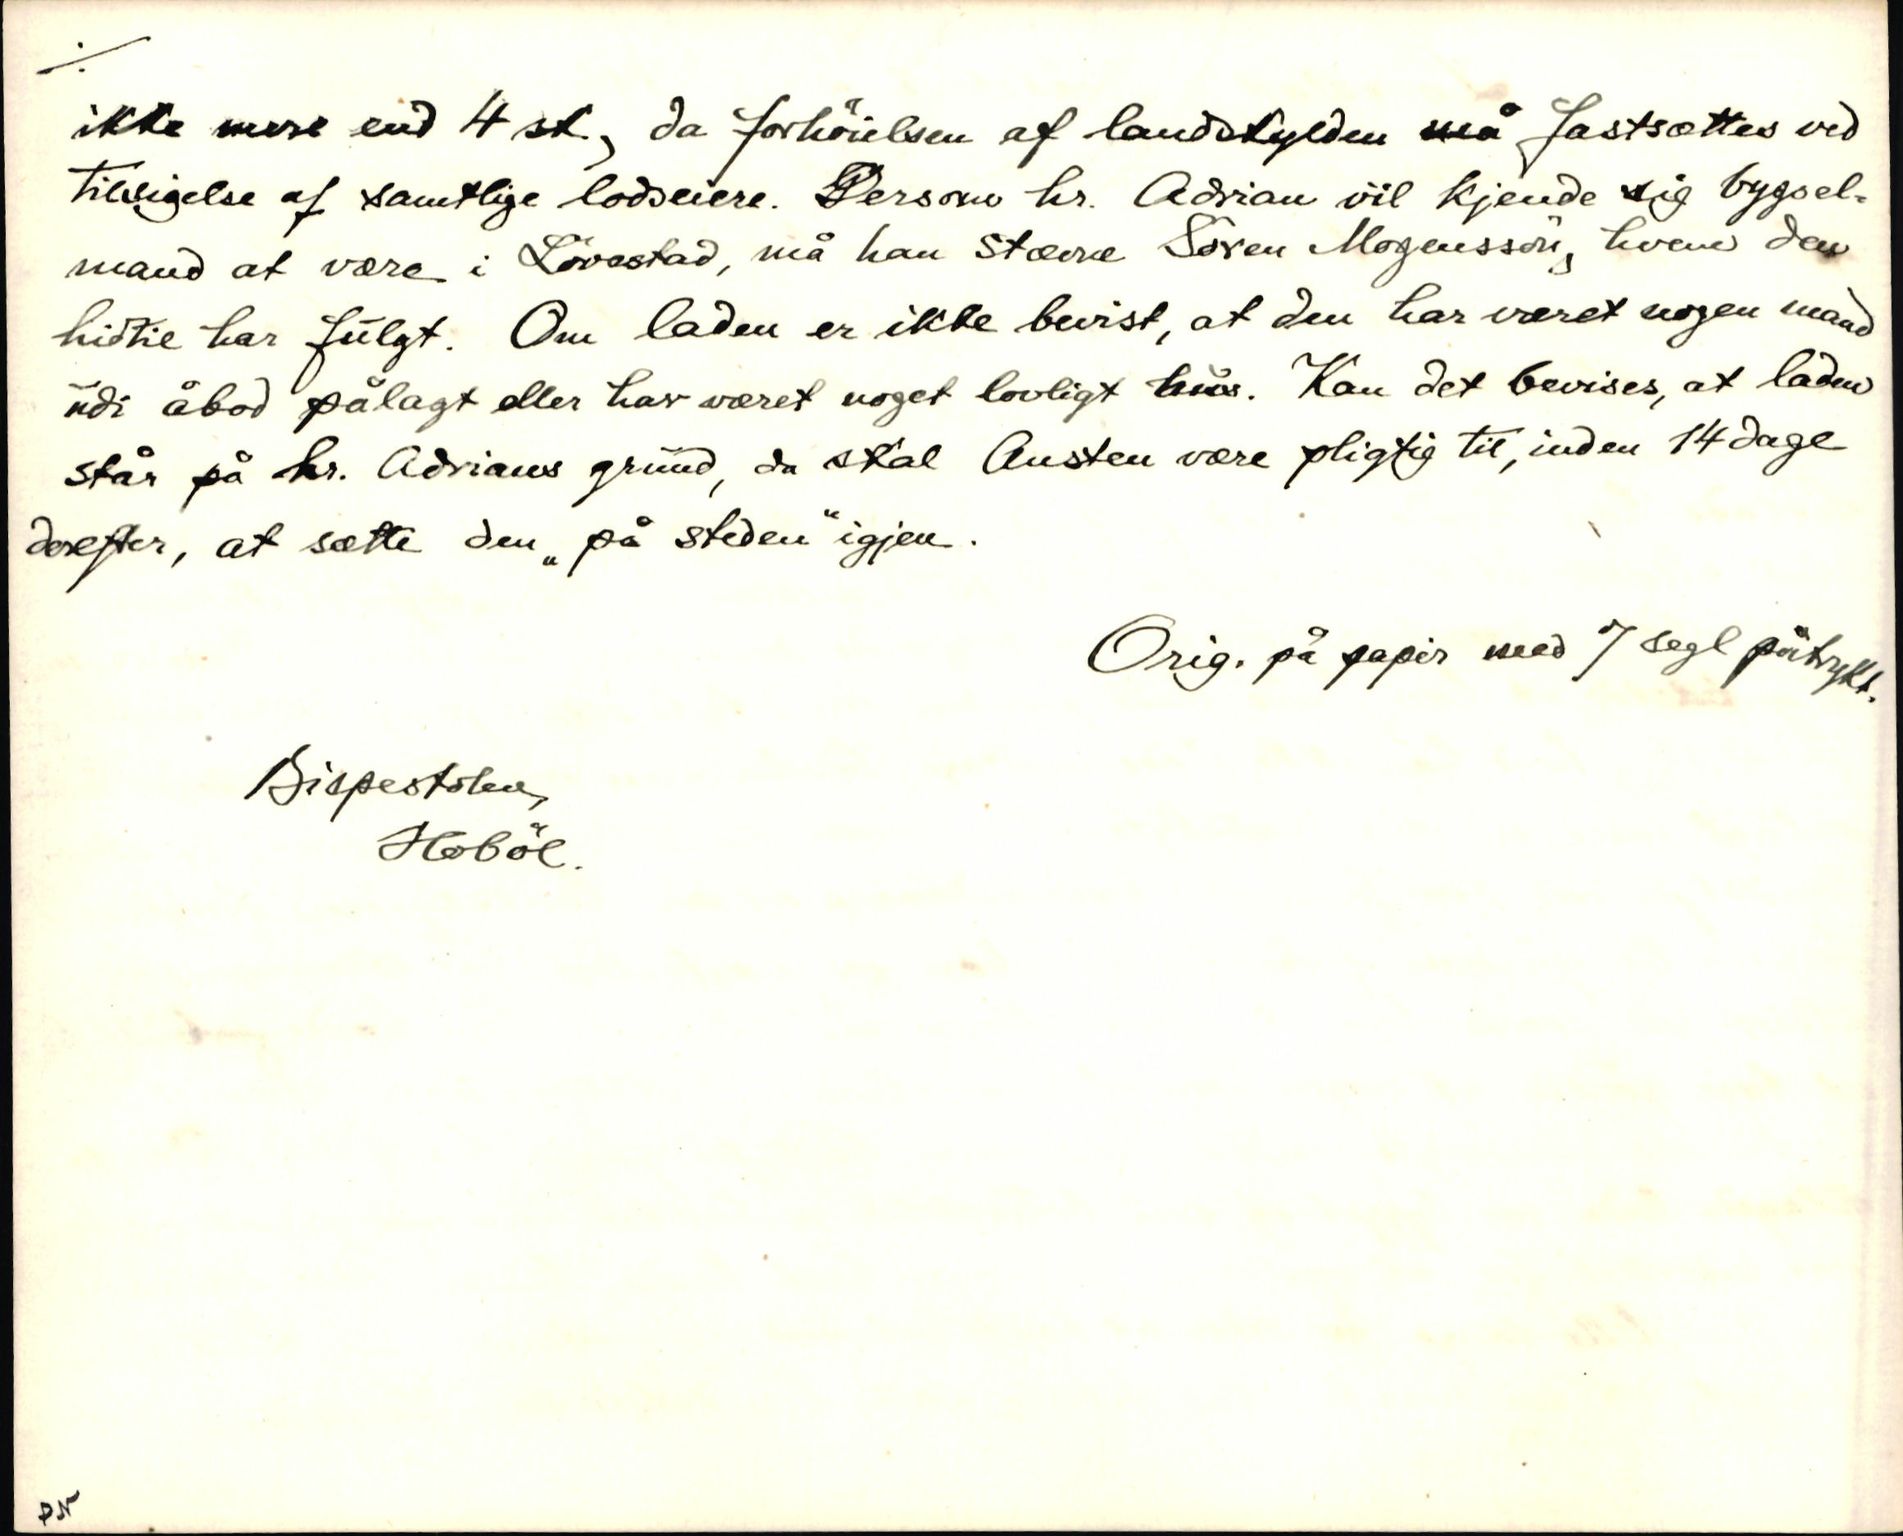 ·/.
ikke mere end 4 sk., da forhöielsen af landskylden må fastsættes ved
tilsigelse af samtlige lodseiere. Dersom hr. Adrian vil kjende sig bygsel-
mand at være i Lövestad, må han stævne Sören Mogenssön, hvem den
hidtil har fulgt. Om laden er ikke bevist, at den har været nogen mand
udi åbod pålagt eller har været noget lovligt hus. Kan det bevises, at laden
står på hr. Adrians grund, da skal Austen være pligtig til, inden 14 dage
derefter, at sætte den „på steden“ igjen.
Orig. på papir med 7 segl påtrykt.
Bispestolen,
Hoböl.